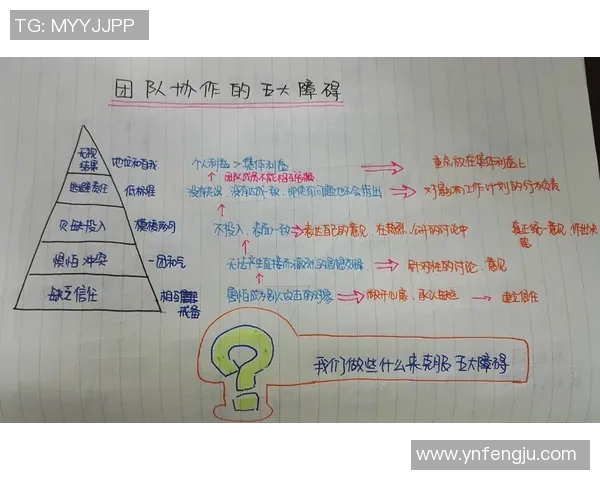 TG: MYYJJPP
团队协作的五大障碍
无视结果 地位和自我 个人利益>集体利益 重点放在集体利益上
团队成员不能相互
逃避责任 低标准 对影响工作计划的行为负责
欠缺投入 模棱两可 不投入,表面一致 表达自己的意见,在激烈、公开的讨论中 真正统一意见,作出决策
惧怕冲突 一团和气 无法产生直接而激烈的思想交锋 针对性的讨论、意见
缺乏信任 相互戒备 害怕成为别人攻击的对象 敞开心扉,承认缺点 建立信任
我们做些什么来克服五大障碍
www.ynfengju.com